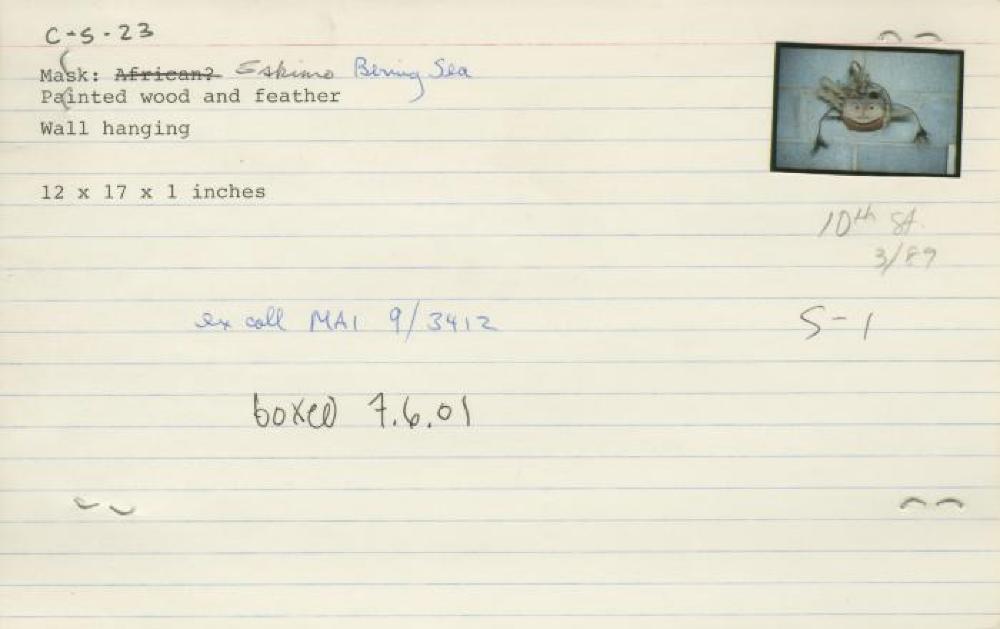 C-S-23
Mask: African? Eskimo Bering Sea
Painted wood and feather
Wall hanging
12 x 17 x 1 inches
10th St.
3/89
ex coll MAI 9/3412
S-1
boxed 7.6.01